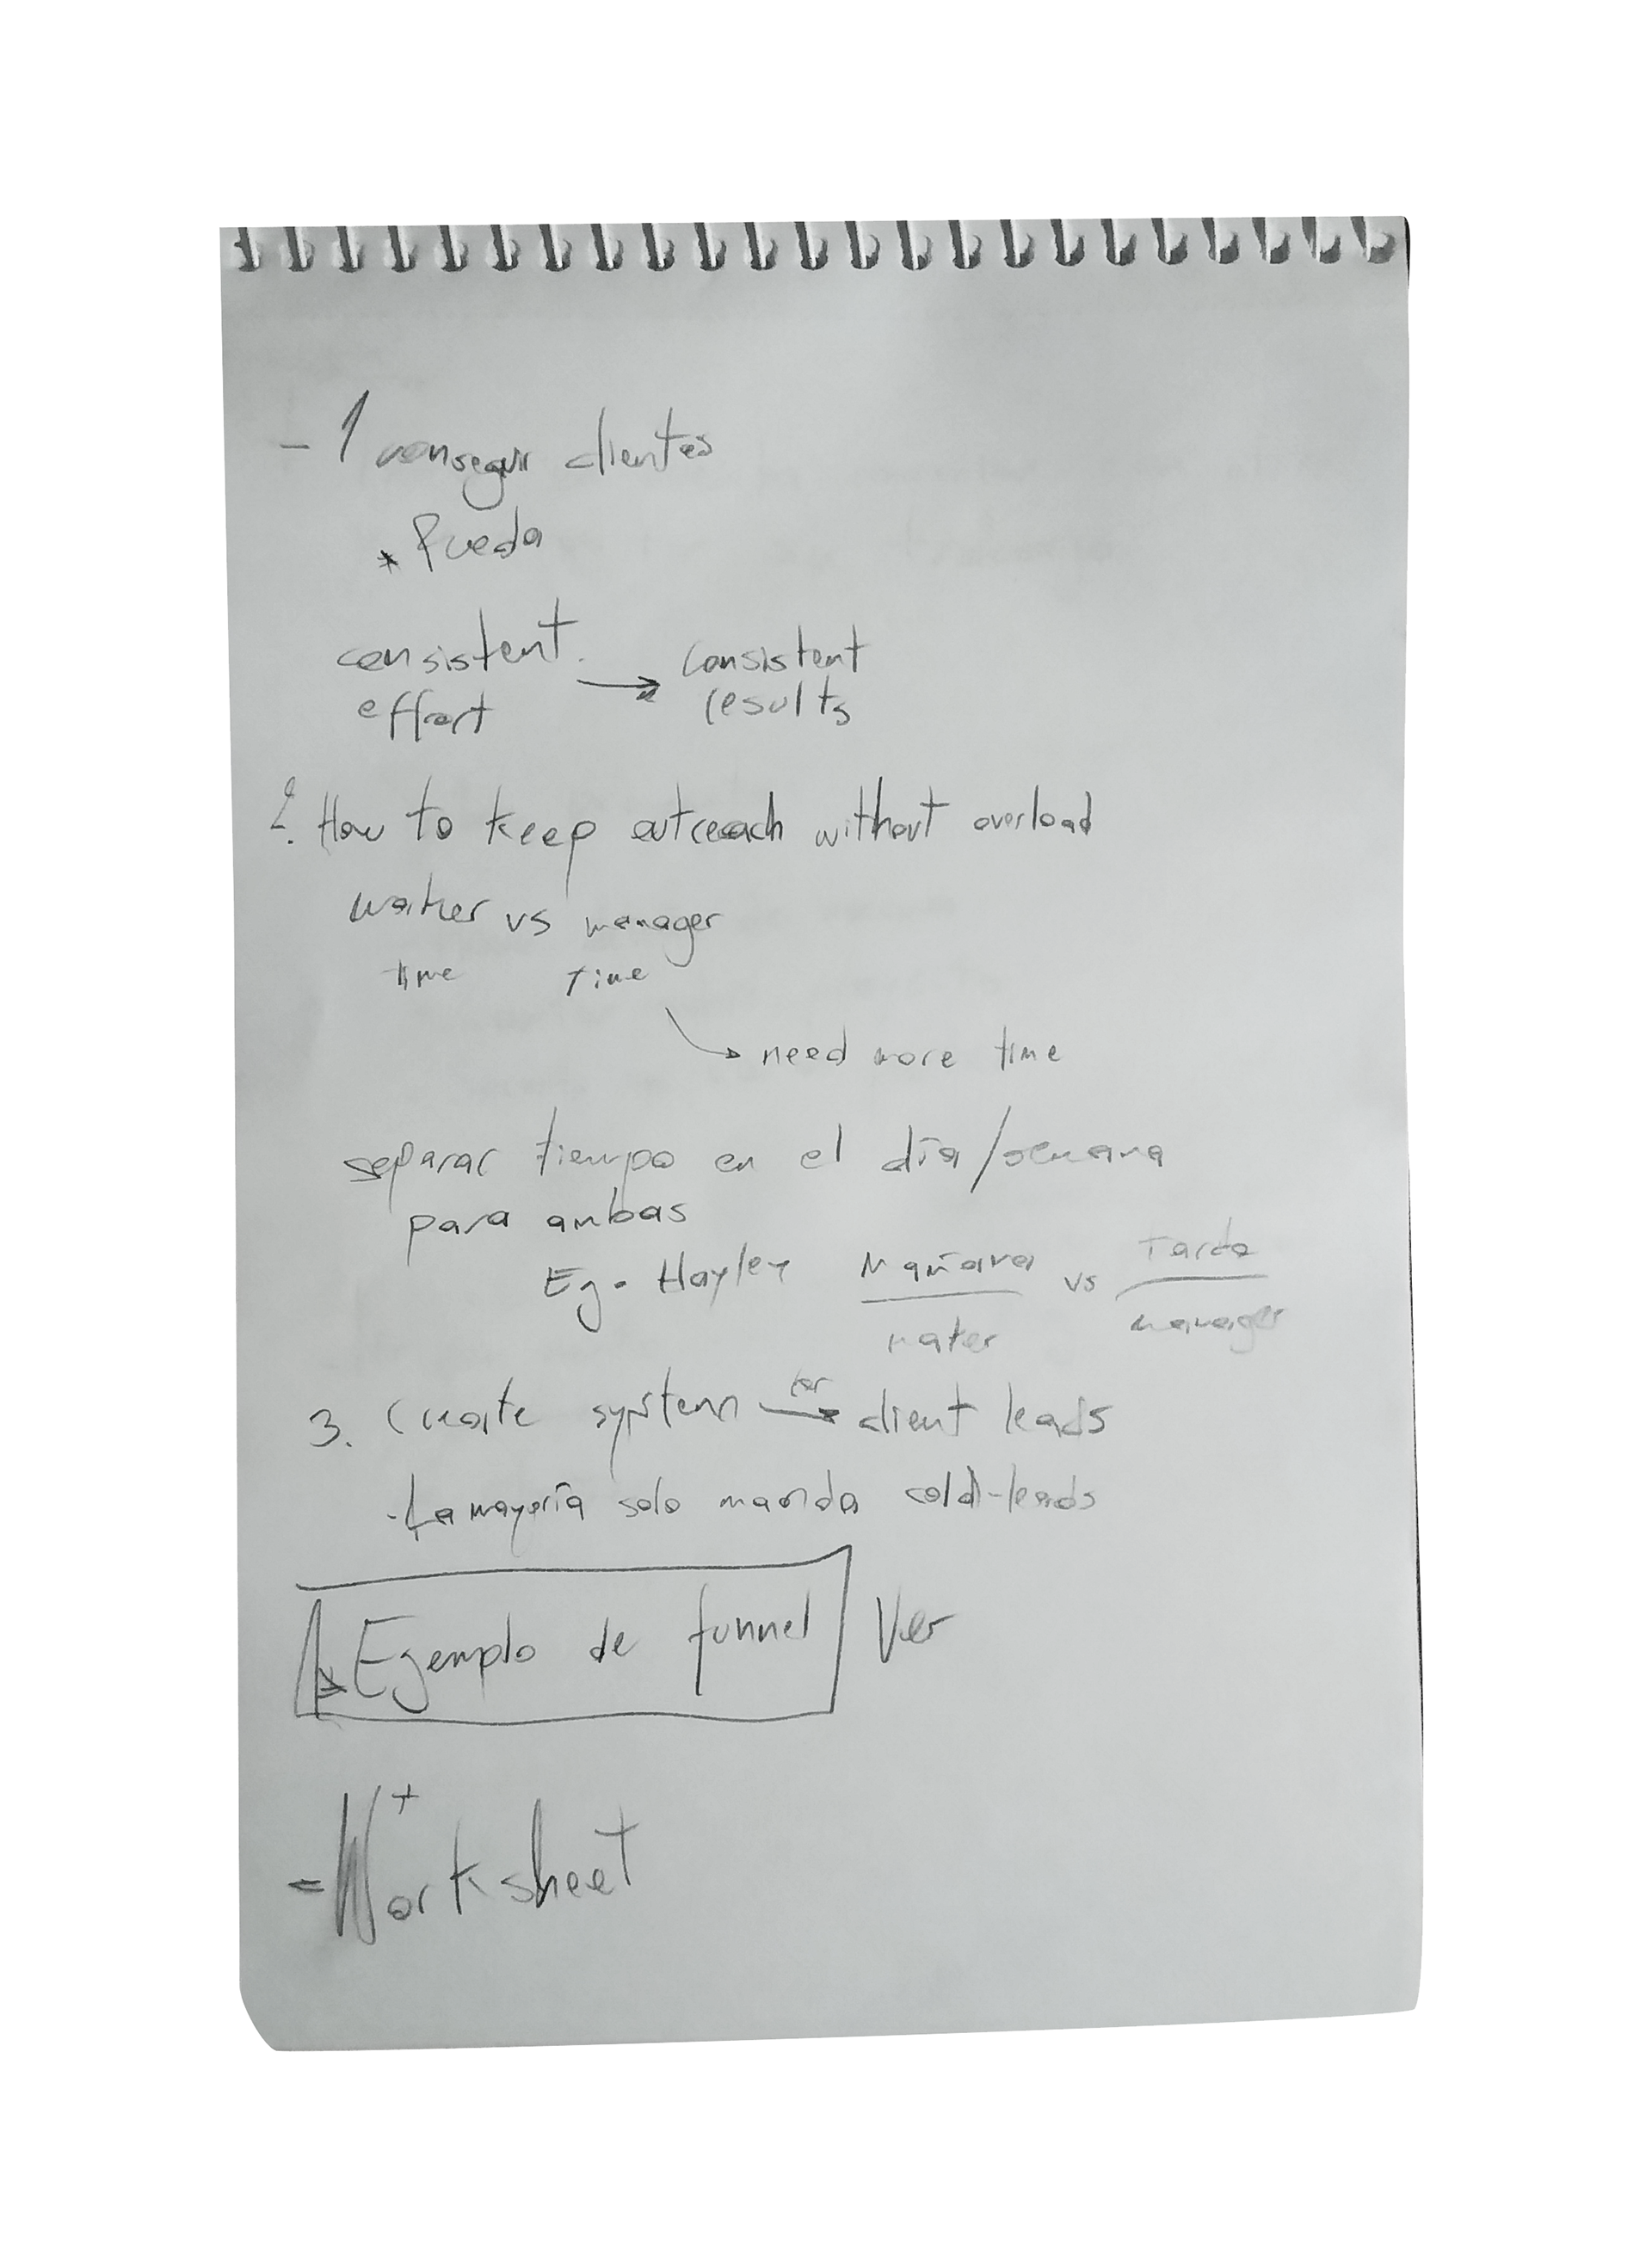 - 1 conseguir clientes
* Pueda
consistent → consistent
effort results
2. How to keep outreach without overload
worker vs manager
time time
→ need more time
separar tiempo en el día/semana
para ambas
Eg. Hayley Mañana vs Tarde
manager
3. Create system for → client leads
- La mayoría solo manda cold-leads
Ejemplo de funnel Ver
+
- Worksheet